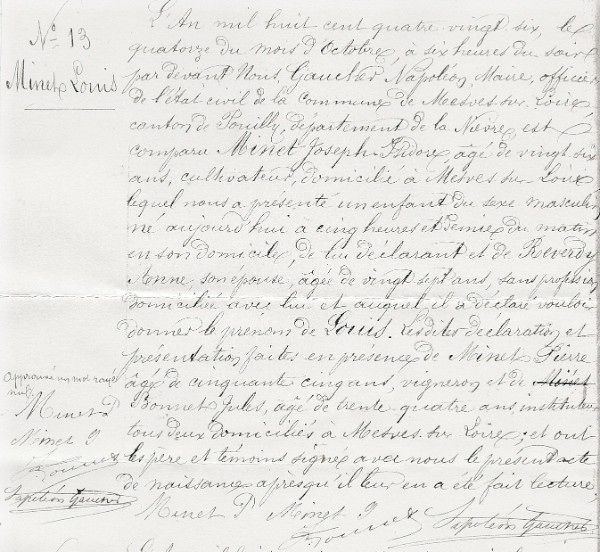 N° 13
Minet Louis
L'An mil huit cent quatre vingt six, le
quatorze du mois d'Octobre, à six heures du soir
par devant Nous, Gaucher, Napoléon, Maire, officier
de l'état civil de la commune de Mesves sur Loire
canton de Pouilly, département de la Nièvre, est
comparu Minet Joseph-Isidore, âgé de vingt six
ans, cultivateur, domicilié à Mesves sur Loire
lequel nous a présenté un enfant du sexe masculin
né aujourd'hui à cinq heures et demie du matin
en son domicile, de lui déclarant et de Reverdy
Anne, son épouse, âgée de vingt sept ans, sans profession
domiciliée avec lui et auquel il a déclaré vouloir
donner le prénom de Louis. Les dites déclaration et
présentation faites en présence de Minet Pierre
âgé de cinquante cinq ans, vigneron et de Minet
Bonnet Jules, âgé de trente quatre ans instituteur
tous deux domiciliés à Mesves sur Loire; et ont
les père et témoins signé avec nous le présent acte
de naissance après qu'il leur en a été fait lecture.
Minet P Minet J
Bonnet Napoléon Gaucher
Approuvé un mot rayé
nul.
Minet P
Minet J
Bonnet
Napoléon Gaucher